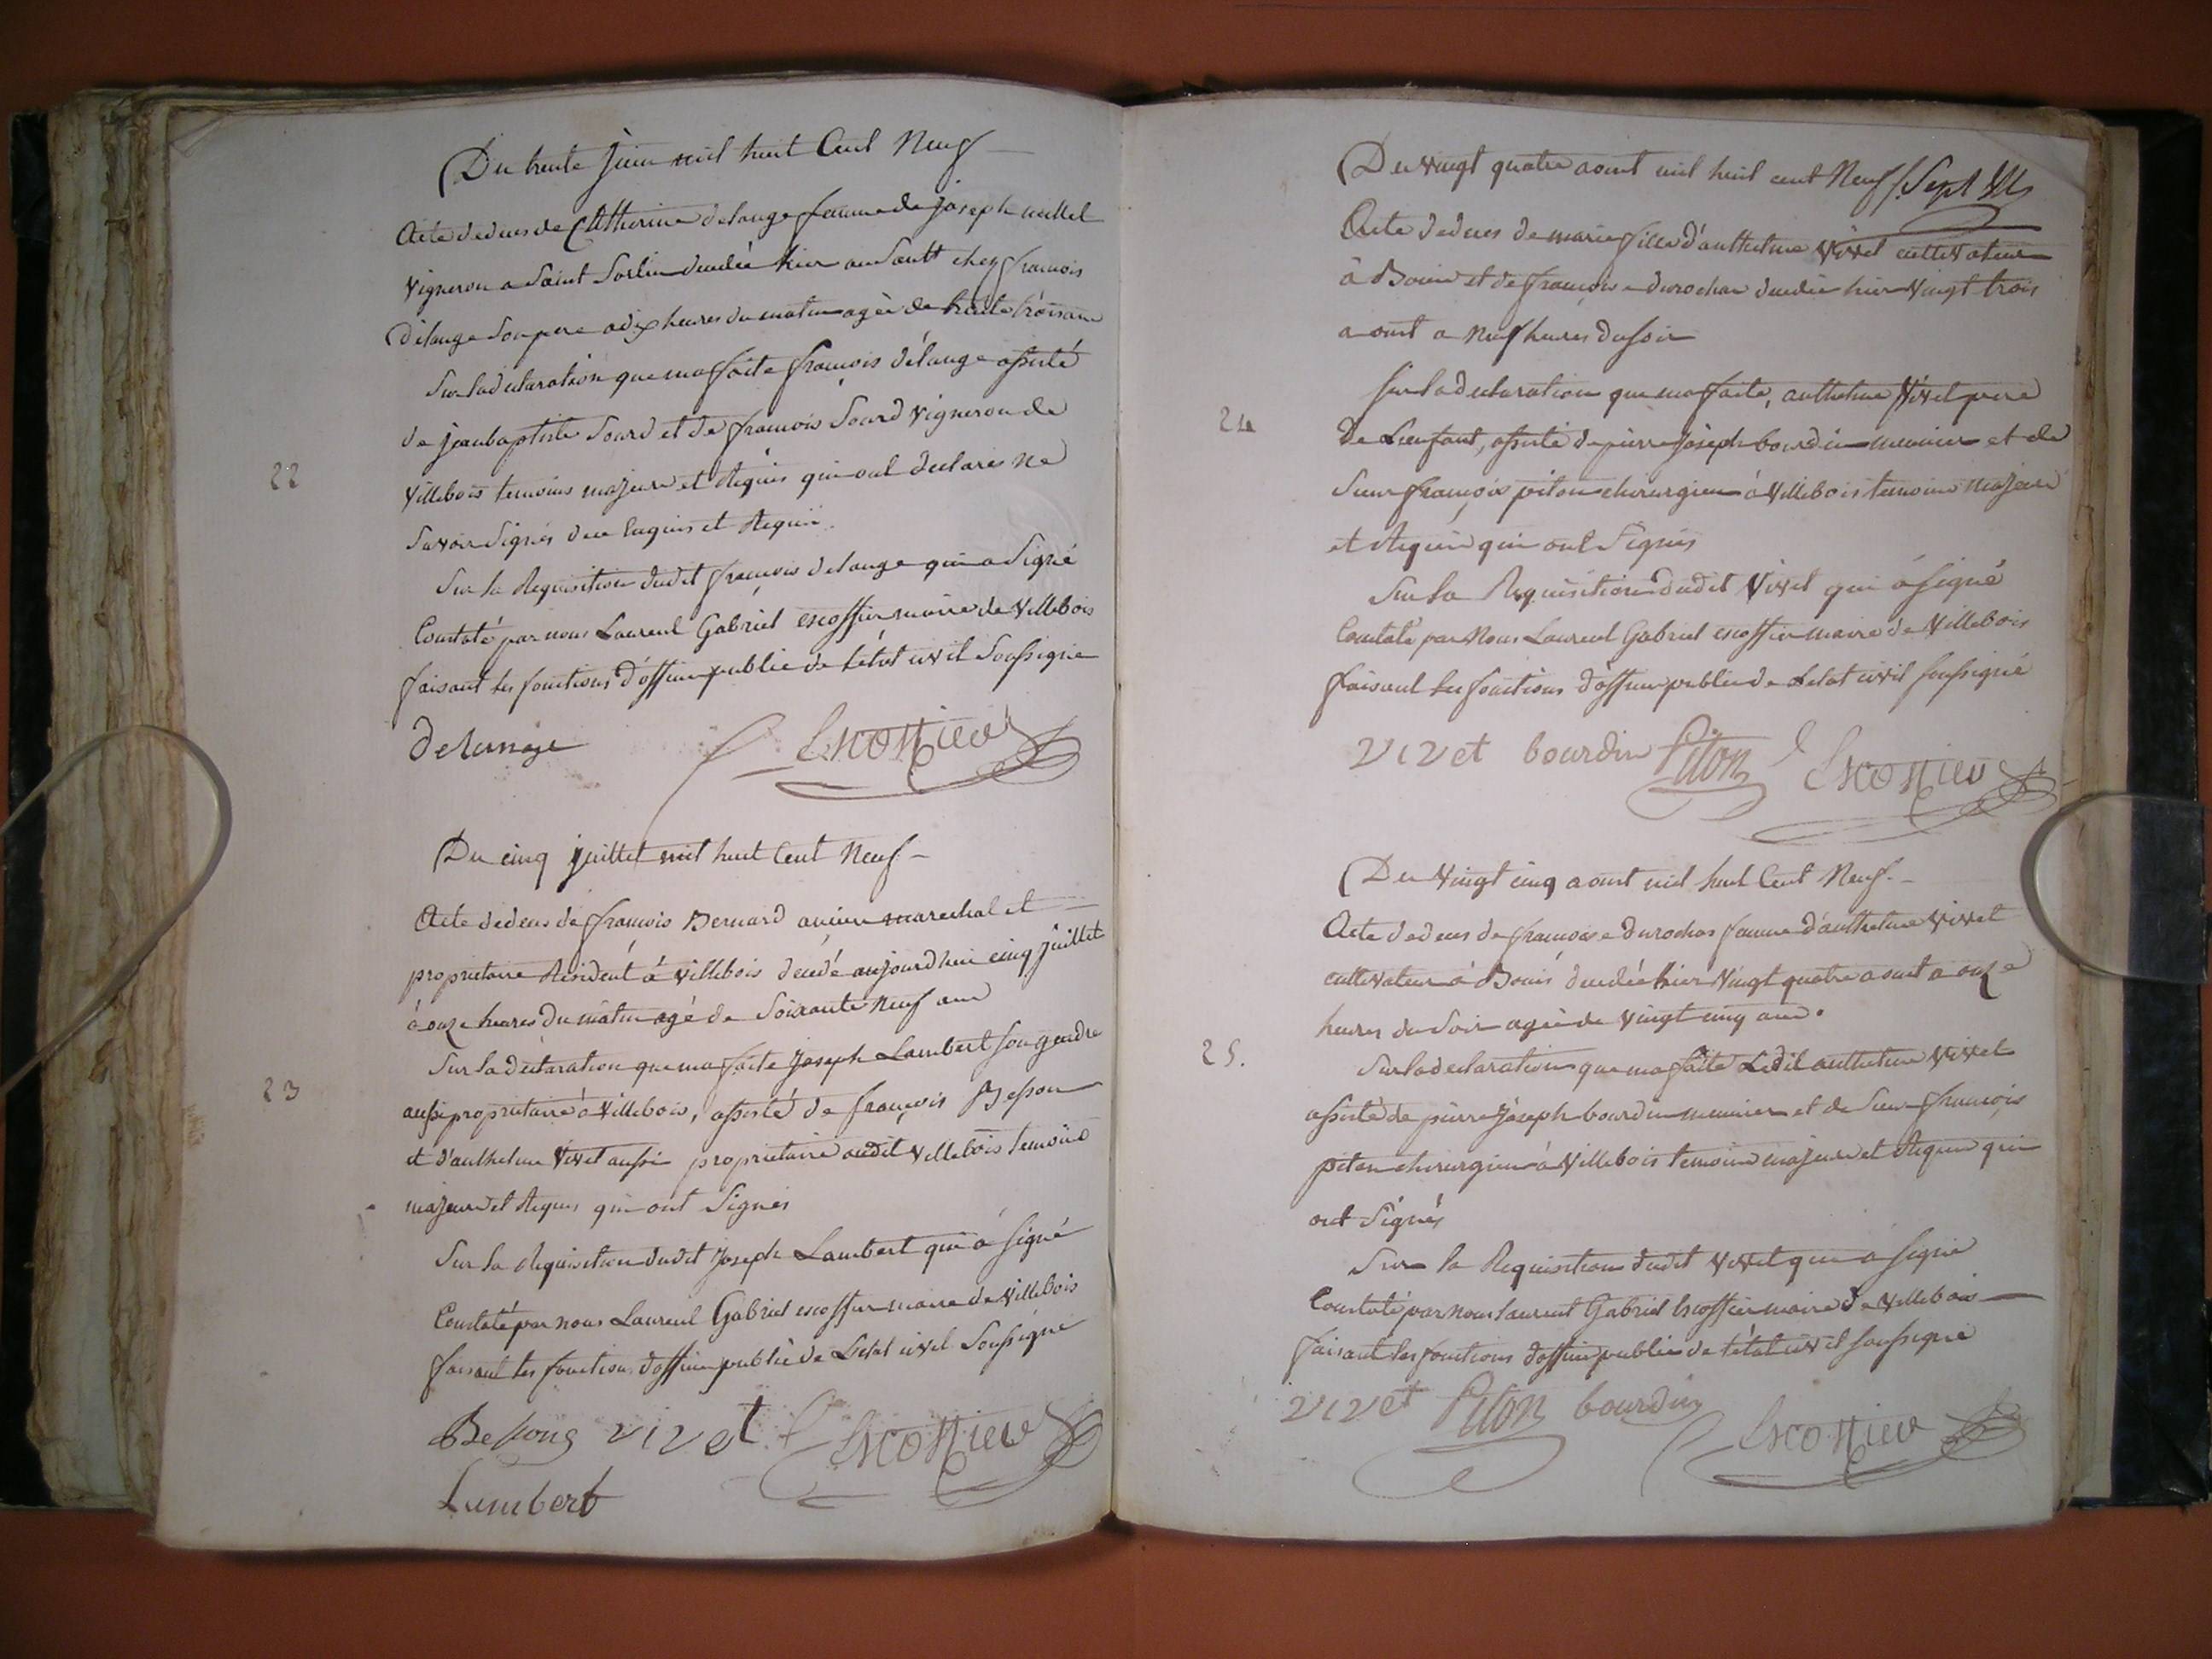 Du trente juin mil huit Cent Neuf
Acte de deces de Catherine delange femme de joseph
vigneron a Saint Sorlin decedée hier au Sault chez francois
Délange Son pere a dix heures du matin agée de trente trois ans
Sur la declaration que m'a faite francois délange assisté
de jean baptiste Sourd et de francois Sourd vigneron de
villebois temoins majeurs et Requis qui ont declarés ne
Savoir Signés de ce Enquis et Requis.
Sur la Requisition dudit francois delange qui a Signé
Constaté par nous Laurent Gabriel escoffier maire de villebois
faisant les fonctions d'officier public de l'état civil Soussigné
delange Escoffier
22
Du cinq juillet mil huit Cent Neuf
Acte de deces de francois Bernard ancien marechal et
proprietaire Resident á villebois decedé aujourdhui cinq juillet
á onze heures du matin agé de Soixante Neuf ans
Sur la declaration que m'a faite joseph Lambert Son gendre
aussi proprietaire á villebois, assisté de francois Besson
et d'anthelme vivet aussi proprietaire audit villebois temoins
majeurs et Requis qui ont Signés
Sur la Requisition dudit joseph Lambert qui á Signé
Constaté par nous Laurent Gabriel escoffier maire de villebois
faisant les fonctions d'officier public de L'etat civil Soussigné
Bessong vivet Escoffier
Lambert
23
Du vingt quatre aout mil huit cent Neuf Sept
Acte de deces de marie fille d'anthelme vivet cultivateur
á Bouis et de francoise durochas decedée hier vingt trois
aout a Neuf heures du soir
Sur la declaration que m'a faite, anthelme vivet pere
de L'enfant, assisté de pierre joseph bourdin meunier et de
Sieur françois piton chirurgien á villebois temoins majeurs
et Requis qui ont Signés
Sur la Requisition dudit vivet qui á signé
Constaté par Nous Laurent Gabriel escoffier maire de villebois
faisant les fonctions d'officier public de L'etat civil soussigné
vivet bourdin Piton Escoffier
24
Du vingt cinq aout mil huit Cent Neuf.
Acte de deces de francoise durochas femme d'anthelme vivet
cultivateur á Bouis decedée hier vingt quatre aout a onze
heures du Soir agée de vingt cinq ans.
Sur la declaration que m'a faite Ledit anthelme vivet
assisté de pierre joseph bourdin meunier et de Sieur francois
piton chirurgien á villebois temoins majeurs et Requis qui
ont Signés
Sur la Requisition dudit vivet qui a signé
Constaté par nous laurent Gabriel Escoffier maire de villebois
faisant les fonctions d'officier public de l'état civil soussigné
vivet Piton bourdin Escoffier
25.